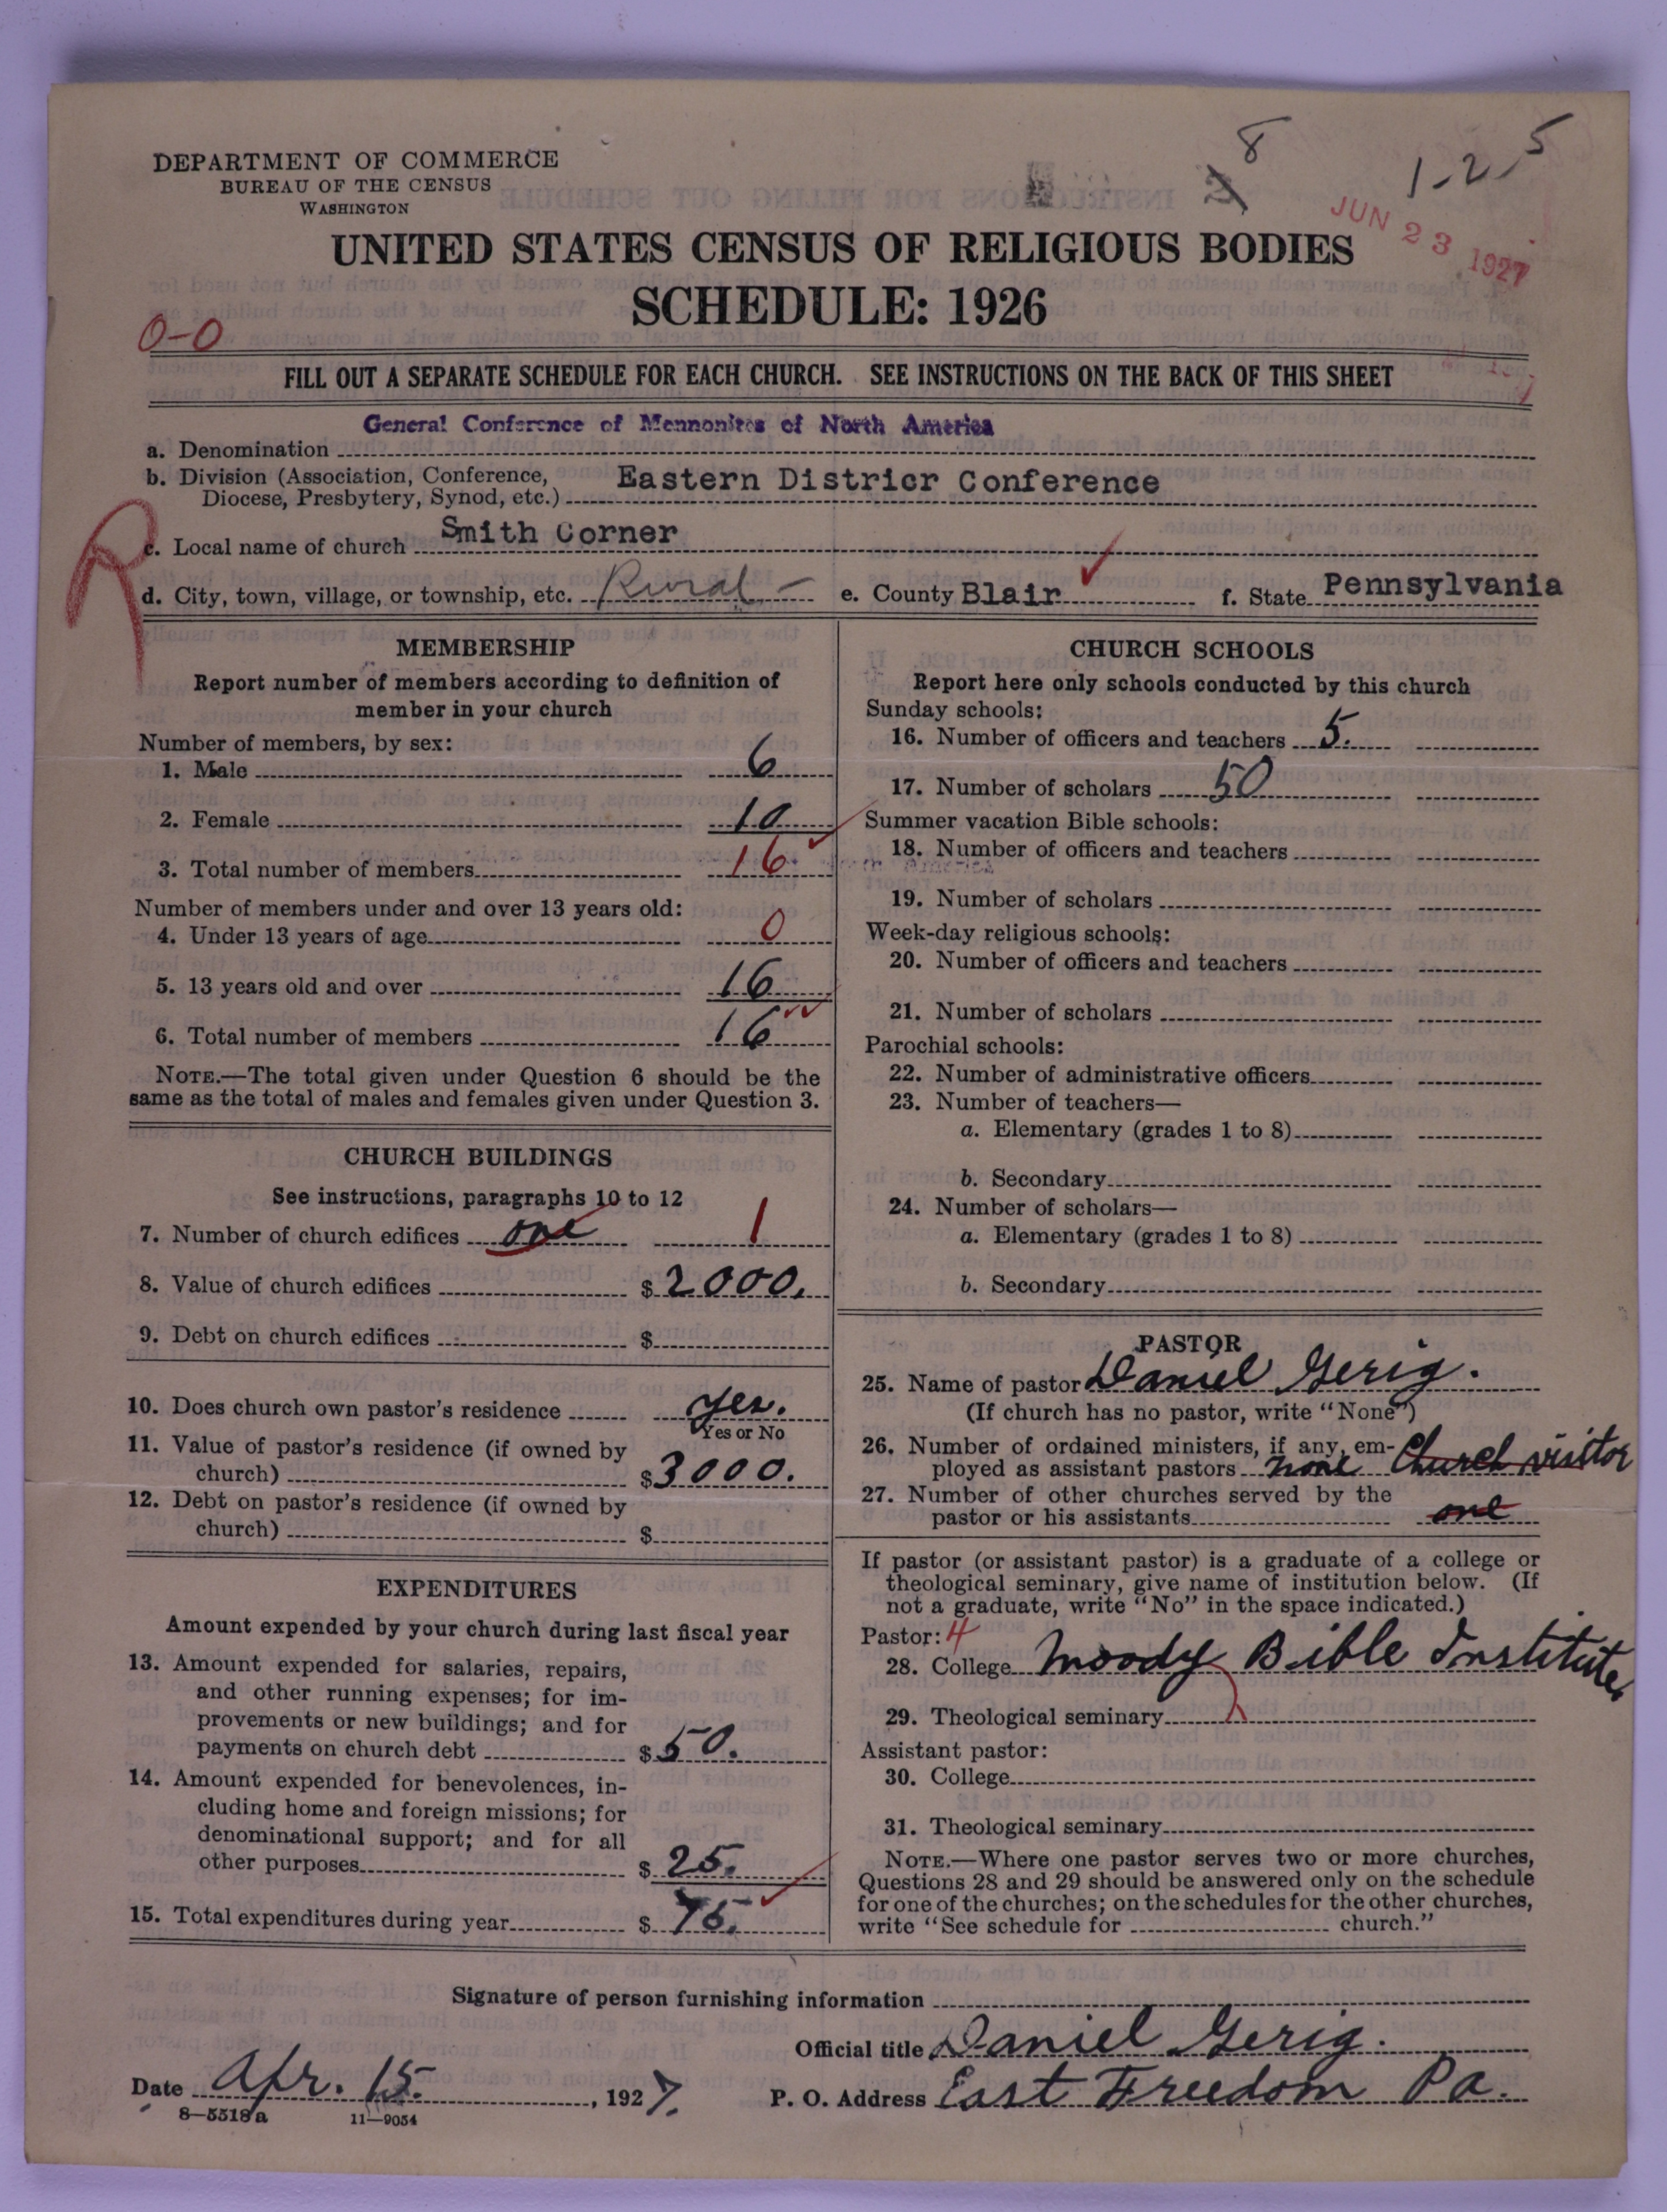 8
2
1-2-5
DEPARTMENT OF COMMERCE
BUREAU OF THE CENSUS
WASHINGTON
JUN 23 1927
UNITED STATES CENSUS OF RELIGIOUS BODIES
SCHEDULE: 1926
0-0
FILL OUT A SEPARATE SCHEDULE FOR EACH CHURCH. SEE INSTRUCTIONS ON THE BACK OF THIS SHEET
General Conference of Mennonites of North America
a. Denomination
b. Division (Association, Conference, Eastern Districr Conference
Diocese, Presbytery, Synod, etc.)
R
c. Local name of church Smith Corner
d. City, town, village, or township, etc. Rural - e. County Blair f. State Pennsylvania
MEMBERSHIP
Report number of members according to definition of
member in your church
Number of members, by sex:
1. Male 6
2. Female 10
3. Total number of members 16
Number of members under and over 13 years old:
4. Under 13 years of age 0
5. 13 years old and over 16
6. Total number of members 16
NOTE.—The total given under Question 6 should be the
same as the total of males and females given under Question 3.
CHURCH BUILDINGS
See instructions, paragraphs 10 to 12
7. Number of church edifices one 1
8. Value of church edifices $ 2000.
9. Debt on church edifices $
10. Does church own pastor's residence Yes.
Yes or No
11. Value of pastor's residence (if owned by
church) $ 3000.
12. Debt on pastor's residence (if owned by
church) $
EXPENDITURES
Amount expended by your church during last fiscal year
13. Amount expended for salaries, repairs,
and other running expenses; for im-
provements or new buildings; and for
payments on church debt $ 50.
14. Amount expended for benevolences, in-
cluding home and foreign missions; for
denominational support; and for all
other purposes $ 25.
15. Total expenditures during year $ 75.
CHURCH SCHOOLS
Report here only schools conducted by this church
Sunday schools:
16. Number of officers and teachers 5.
17. Number of scholars 50
Summer vacation Bible schools:
18. Number of officers and teachers
19. Number of scholars
Week-day religious schools:
20. Number of officers and teachers
21. Number of scholars
Parochial schools:
22. Number of administrative officers
23. Number of teachers—
a. Elementary (grades 1 to 8)
b. Secondary
24. Number of scholars—
a. Elementary (grades 1 to 8)
b. Secondary
PASTOR
25. Name of pastor Daniel Gerig.
(If church has no pastor, write "None")
26. Number of ordained ministers, if any, em-
ployed as assistant pastors none Church visitor
27. Number of other churches served by the
pastor or his assistants one
If pastor (or assistant pastor) is a graduate of a college or
theological seminary, give name of institution below. (If
not a graduate, write "No" in the space indicated.)
Pastor: 4
28. College Moody Bible Institute
29. Theological seminary
Assistant pastor:
30. College
31. Theological seminary
NOTE.—Where one pastor serves two or more churches,
Questions 28 and 29 should be answered only on the schedule
for one of the churches; on the schedules for the other churches,
write "See schedule for church."
Signature of person furnishing information
Official title Daniel Gerig.
Date Apr. 15. , 1927. P. O. Address East Freedom Pa.
8—5518a 11—9054